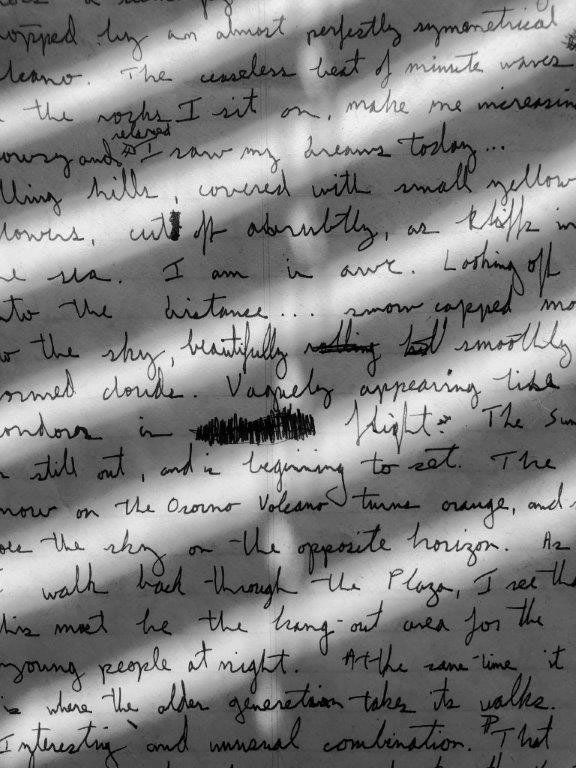 opped by an almost perfectly symmetrical
lcano. The ceaseless beat of minute waves
the rocks I sit on, make me increasin
relaxed
owsy and I saw my dreams today...
lling hills, covered with small yellow
lowers, cut off abrubtly, as kliffs in
e sea. I am in awe. Looking off
nto the distance.... snow capped mo
o the sky, beautifully smoothly
ormed clouds. Vaguely appearing like
ondors in flight. The Sun
s still out, and is beginning to set. The
now on the Osorno Volcano turns orange, and s
oes the sky on the opposite horizon. As
I walk back through the Plaza, I see tha
his must be the hang-out area for the
young people at night. At the same time it
is where the older generation takes its walks.
Interesting and unusual combination. That